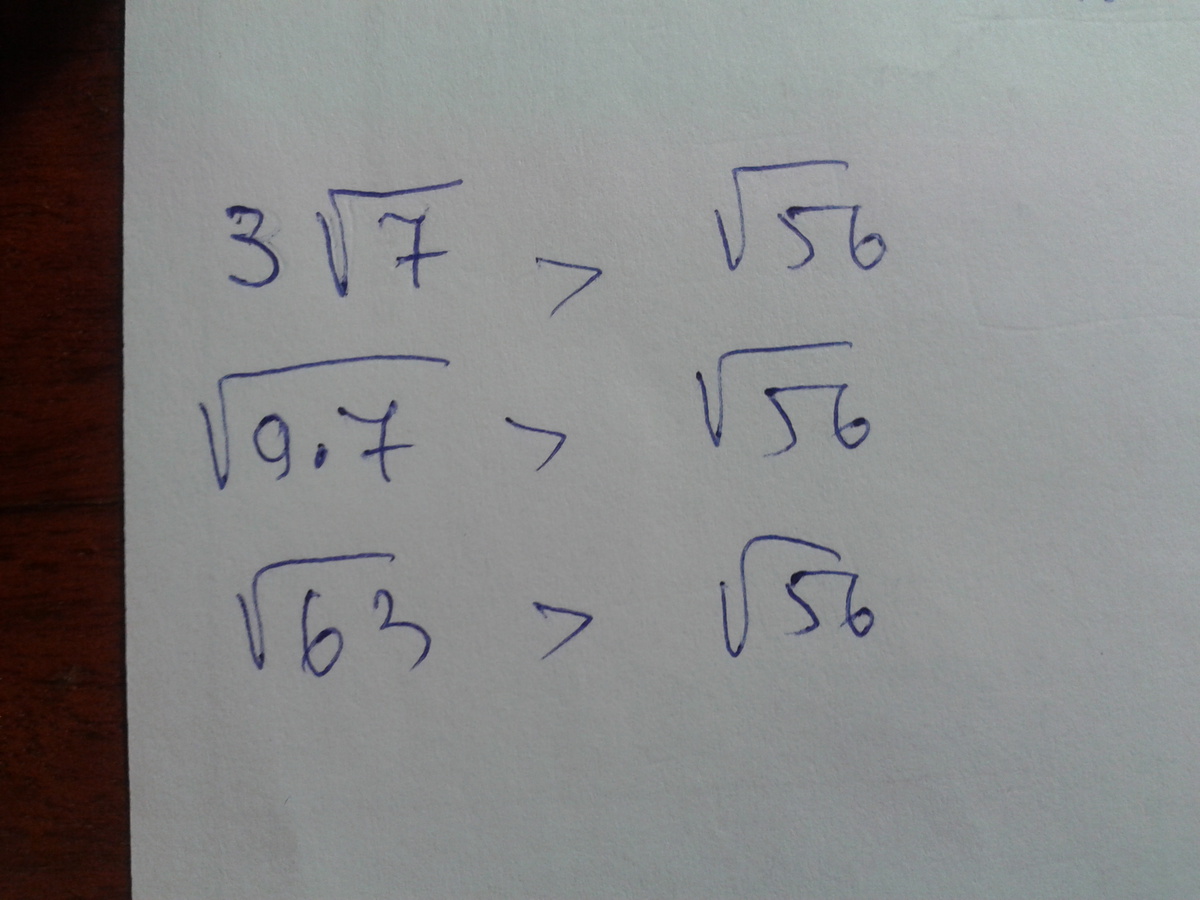 3√7 > √56
√9·7 > √56
√63 > √56